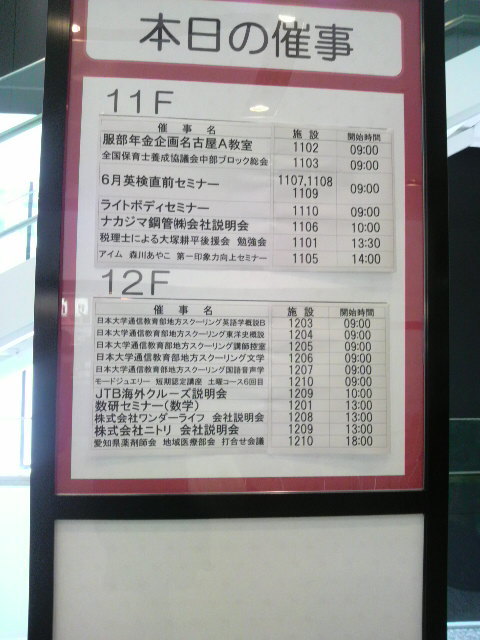 本日の催事
11F
催事名 施設 開始時間
服部年金企画名古屋A教室 1102 09:00
全国保育士養成協議会中部ブロック総会 1103 09:00
6月英検直前セミナー 1107,1108 1109 09:00
ライトボディセミナー 1110 09:00
ナカジマ鋼管㈱会社説明会 1106 10:00
税理士による大塚耕平後援会 勉強会 1101 13:30
アイム 森川あやこ 第一印象力向上セミナー 1105 14:00
12F
催事名 施設 開始時間
日本大学通信教育部地方スクーリング英語学概説B 1203 09:00
日本大学通信教育部地方スクーリング東洋史概説 1204 09:00
日本大学通信教育部地方スクーリング講師控室 1205 09:00
日本大学通信教育部地方スクーリング文学 1206 09:00
日本大学通信教育部地方スクーリング国語音声学 1207 09:00
モードジュエリー 短期認定講座 土曜コース6回目 1210 09:00
JTB海外クルーズ説明会 1209 10:00
数研セミナー(数学) 1201 13:00
株式会社ワンダーライフ 会社説明会 1208 13:00
株式会社ニトリ 会社説明会 1209 13:00
愛知県薬剤師会 地域医療部会 打合せ会議 1210 18:00